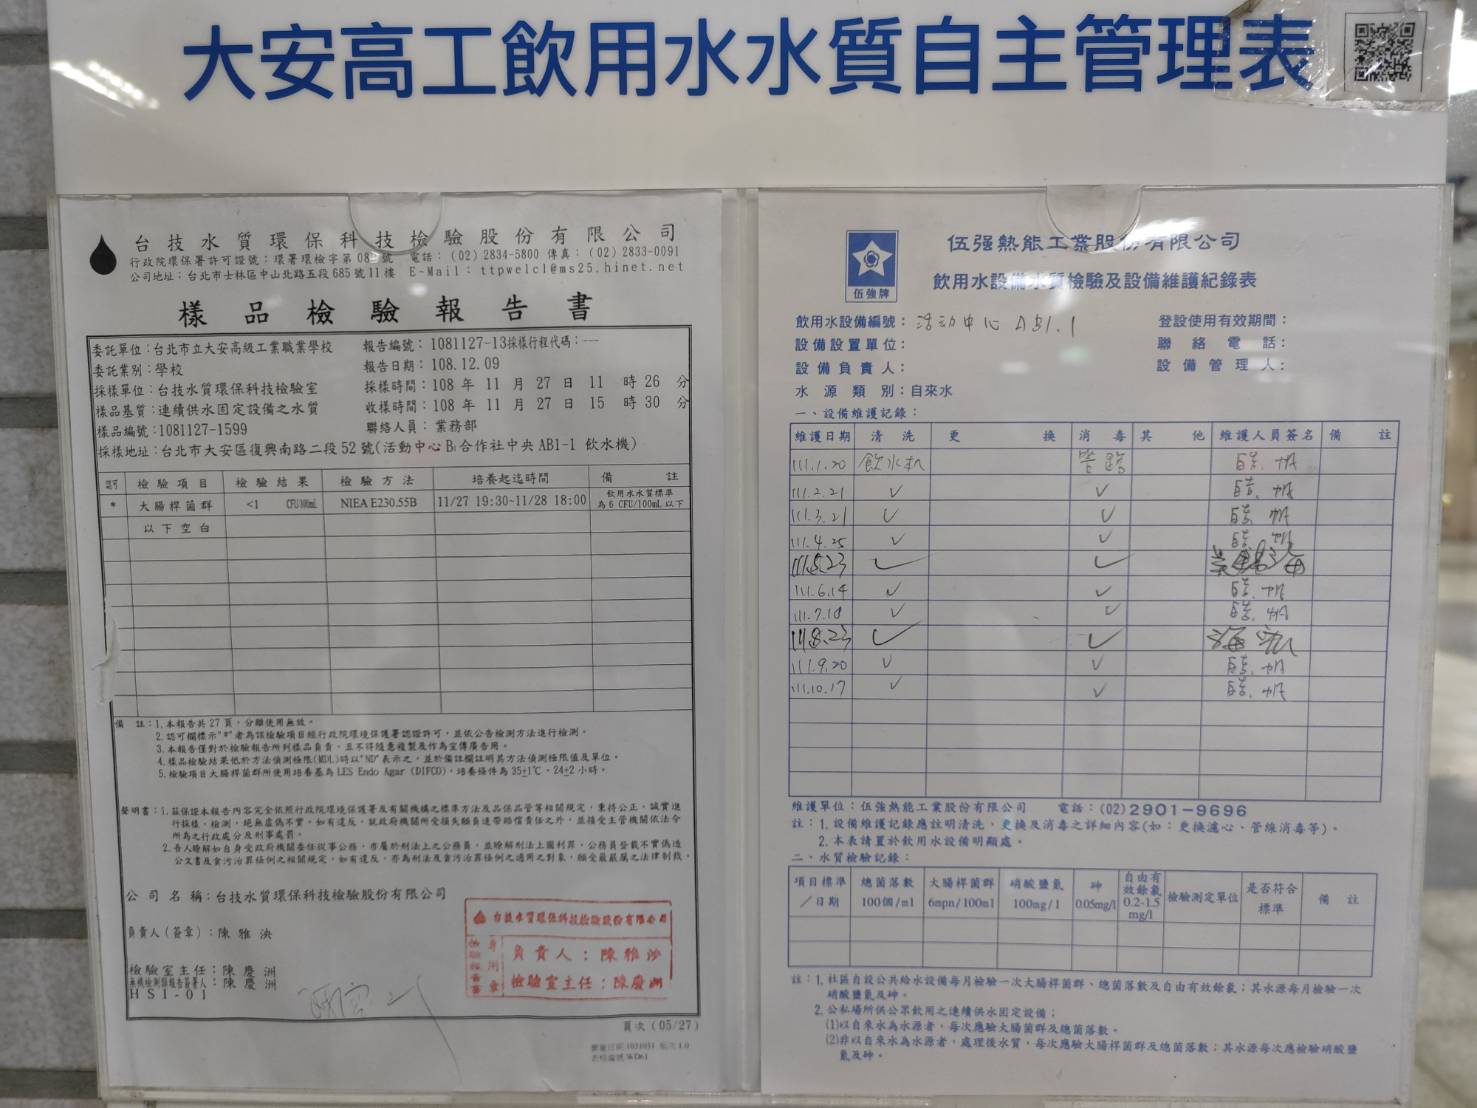 大安高工飲用水水質自主管理表
台技水質環保科技檢驗股份有限公司
行政院環保署許可證號：環署環檢字第08 號 電話：(02) 2834-5800 傳真：(02) 2833-0091
公司地址：台北市士林區中山北路五段685號11樓 E-Mail：ttpwelcl@ms25.hinet.net
樣品檢驗報告書
委託單位：台北市立大安高級工業職業學校 報告編號：1081127-13採樣行程代碼：---
委託業別：學校 報告日期：108.12.09
採樣單位：台技水質環保科技檢驗室 採樣時間：108 年 11 月 27 日 11 時 26 分
樣品基質：連續供水固定設備之水質 收樣時間：108 年 11 月 27 日 15 時 30 分
樣品編號：1081127-1599 聯絡人員：業務部
採樣地址：台北市大安區復興南路二段52號(活動中心B1合作社中央AB1-1 飲水機)
認可 檢驗項目 檢驗結果 檢驗方法 培養起迄時間 備註
* 大腸桿菌群 <1 CFU/100mL NIEA E230.55B 11/27 19:30~11/28 18:00 飲用水水質標準為6 CFU/100mL以下
以下空白
備 註：1.本報告共27頁，分離使用無效。
2.認可欄標示"*"者為該檢驗項目經行政院環境保護署認證許可，並依公告檢測方法進行檢測。
3.本報告僅對於檢驗報告所列樣品負責，且不得隨意複製及作為宣傳廣告用。
4.樣品檢驗結果低於方法偵測極限(MDL)時以"ND"表示之，並於備註欄註明其方法偵測極限值及單位。
5.檢驗項目大腸桿菌群所使用培養基為LES Endo Agar (DIFCO)，培養條件為35±1℃、24±2小時。
聲明書：1.茲保證本報告內容完全依照行政院環境保護署及有關機構之標準方法及品保品管等相關規定，秉持公正、誠實進
行採樣、檢測，絕無虛偽不實，如有違反，就政府機關所受損失願負連帶賠償責任之外，並接受主管機關依法令
所為之行政處分及刑事處罰。
2.吾人瞭解如自身受政府機關委任從事公務，亦屬於刑法上之公務員，並瞭解刑法上圖利罪、公務員登載不實偽造
公文書及貪污治罪條例之相關規定，如有違反，亦為刑法及貪污治罪條例之適用之對象，願受最嚴厲之法律制裁。
公司名稱：台技水質環保科技檢驗股份有限公司
負責人(簽章)：陳雅泱
檢驗室主任：陳慶洲
無機檢測類報告簽署人：陳慶洲
HSI-01
台技水質環保科技檢驗股份有限公司
負責人：陳雅泱
檢驗室主任：陳慶洲
頁次(05/27)
伍強牌
伍强熱能工業股份有限公司
飲用水設備水質檢驗及設備維護紀錄表
飲用水設備編號：活动中心 AB1.1 登設使用有效期間：
設備設置單位： 聯絡電話：
設備負責人： 設備管理人：
水源類別：自來水
一、設備維護記錄：
維護日期 清洗 更換 消毒 其他 維護人員簽名 備註
111.1.20 飲水机 管路
111.2.21 ✓ ✓
111.3.21 ✓ ✓
111.4.25 ✓ ✓
111.5.23 ✓ ✓
111.6.14 ✓ ✓
111.7.18 ✓ ✓
111.8.23 ✓ ✓
111.9.20 ✓ ✓
111.10.17 ✓ ✓
維護單位：伍強熱能工業股份有限公司 電話：(02)2901-9696
註：1.設備維護記錄應註明清洗、更換及消毒之詳細內容(如：更換濾心、管線消毒等)。
2.本表請置於飲用水設備明顯處。
二、水質檢驗記錄：
項目標準／日期 總菌落數100個/ml 大腸桿菌群6mpn/100ml 硝酸鹽氮100mg/l 砷0.05mg/l 自由有效餘氯0.2-1.5mg/l 檢驗測定單位 是否符合標準 備註
註：1.社區自設公共給水設備每月檢驗一次大腸桿菌群、總菌落數及自由有效餘氯；其水源每月檢驗一次
硝酸鹽氮及砷。
2.公私場所供公眾飲用之連續供水固定設備：
(1)以自來水為水源者，每次應驗大腸桿菌群及總菌落數。
(2)非以自來水為水源者，處理後水質，每次應驗大腸桿菌群及總菌落數；其水源每次應檢驗硝酸鹽
氮及砷。